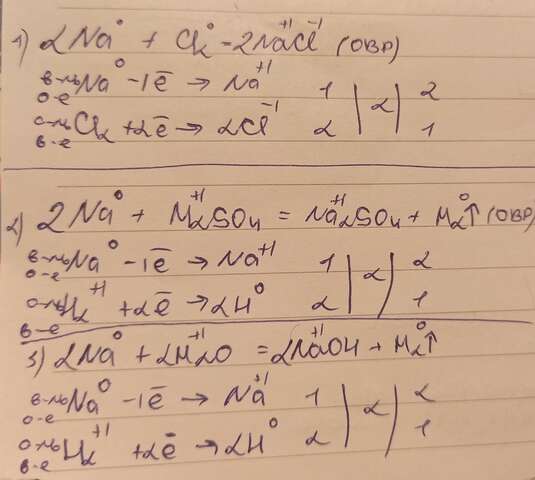 1) 2Na⁰ + Cl₂⁰ = 2Na⁺¹Cl⁻¹ (ОВР)
в-ль Na⁰ - 1ē → Na⁺¹ 1 | 2 | 2
о-е
о-ль Cl₂ + 2ē → 2Cl⁻¹ 2 | | 1
в-е
2) 2Na⁰ + H₂⁺¹SO₄ = Na₂⁺¹SO₄ + H₂⁰↑ (ОВР)
в-ль Na⁰ - 1ē → Na⁺¹ 1 | 2 | 2
о-е
о-ль H₂⁺¹ + 2ē → 2H⁰ 2 | | 1
в-е
3) 2Na⁰ + 2H₂⁺¹O = 2Na⁺¹OH + H₂⁰↑
в-ль Na⁰ - 1ē → Na⁺¹ 1 | 2 | 2
о-е
о-ль H₂⁺¹ + 2ē → 2H⁰ 2 | | 1
в-е